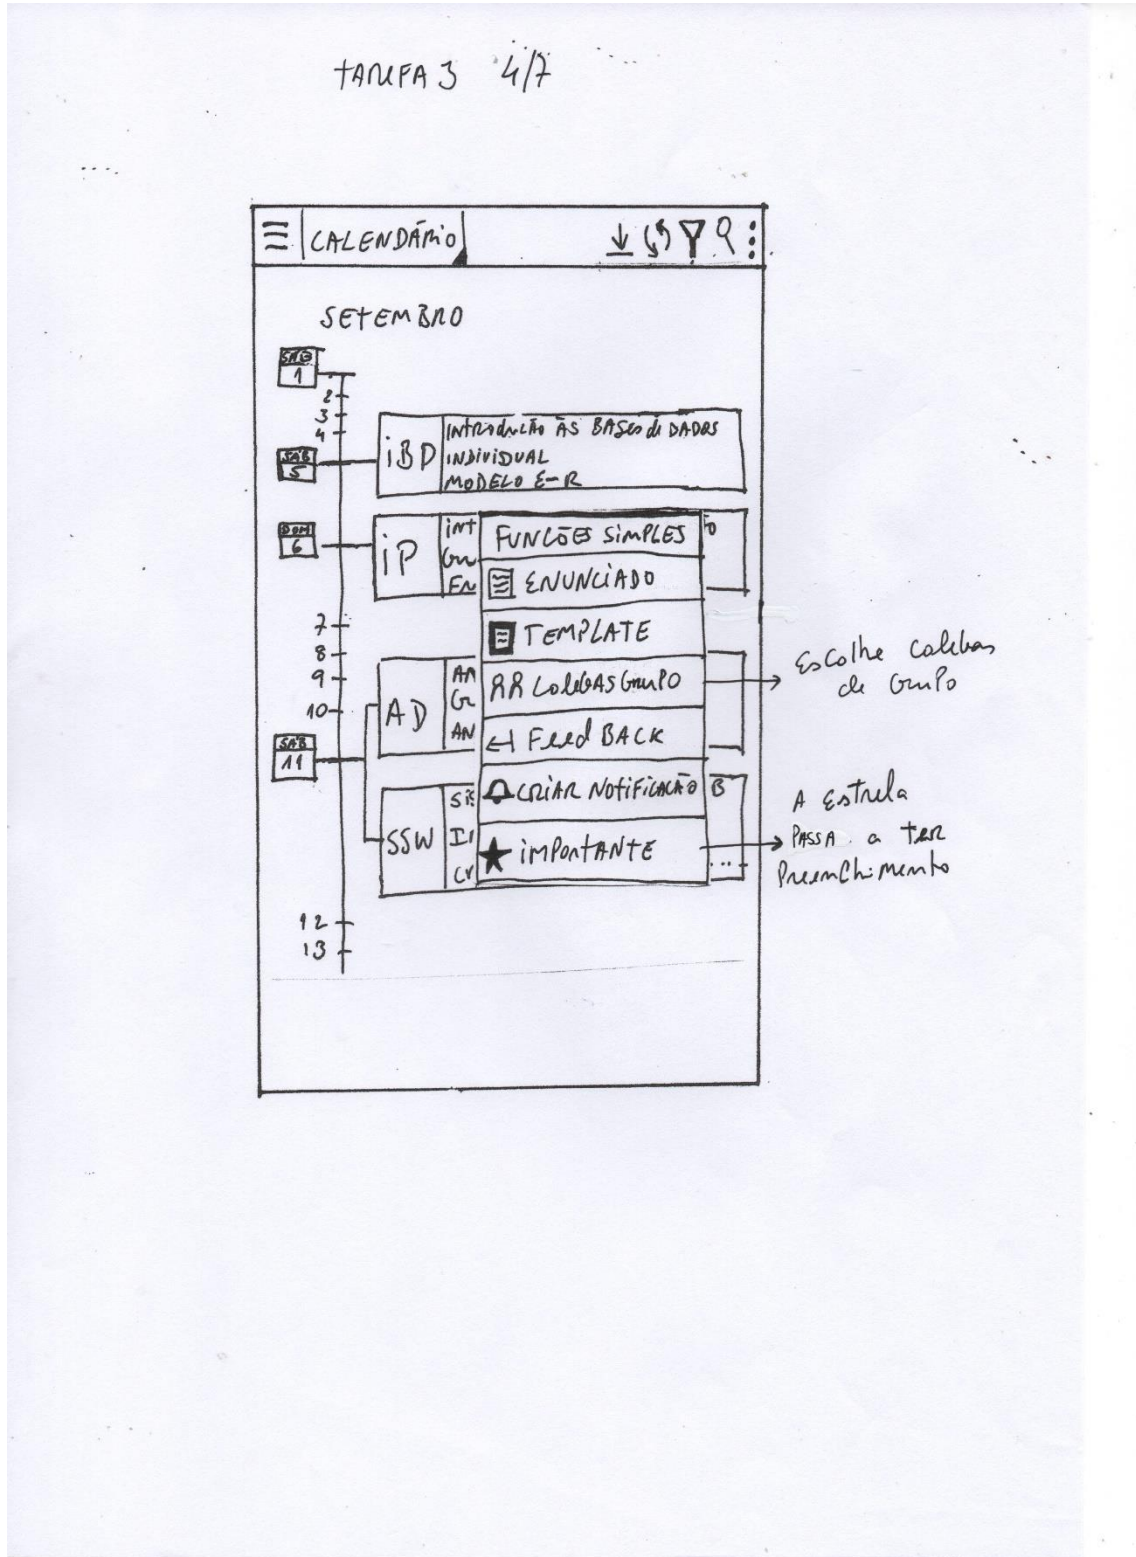 TAREFA 3 4/7
CALENDÁRIO
SETEMBRO
SAB
1
2
3
4
SAB
5
iBD
INTRODUÇÃO ÀS BASES de DADOS
INDIVIDUAL
MODELO E-R
DOM
6
iP
INT
GRU
FN
FUNÇÕES SIMPLES
ENUNCIADO
TEMPLATE
COLEGAS GRUPO
FeedBACK
CRIAR NOTIFICAÇÃO
IMPORTANTE
7
8
9
10
AD
AN
GR
AN
SAB
11
SSW
B
...
12
13
Escolhe colegas
de Grupo
A Estrela
PASSA a ter
Preenchimento